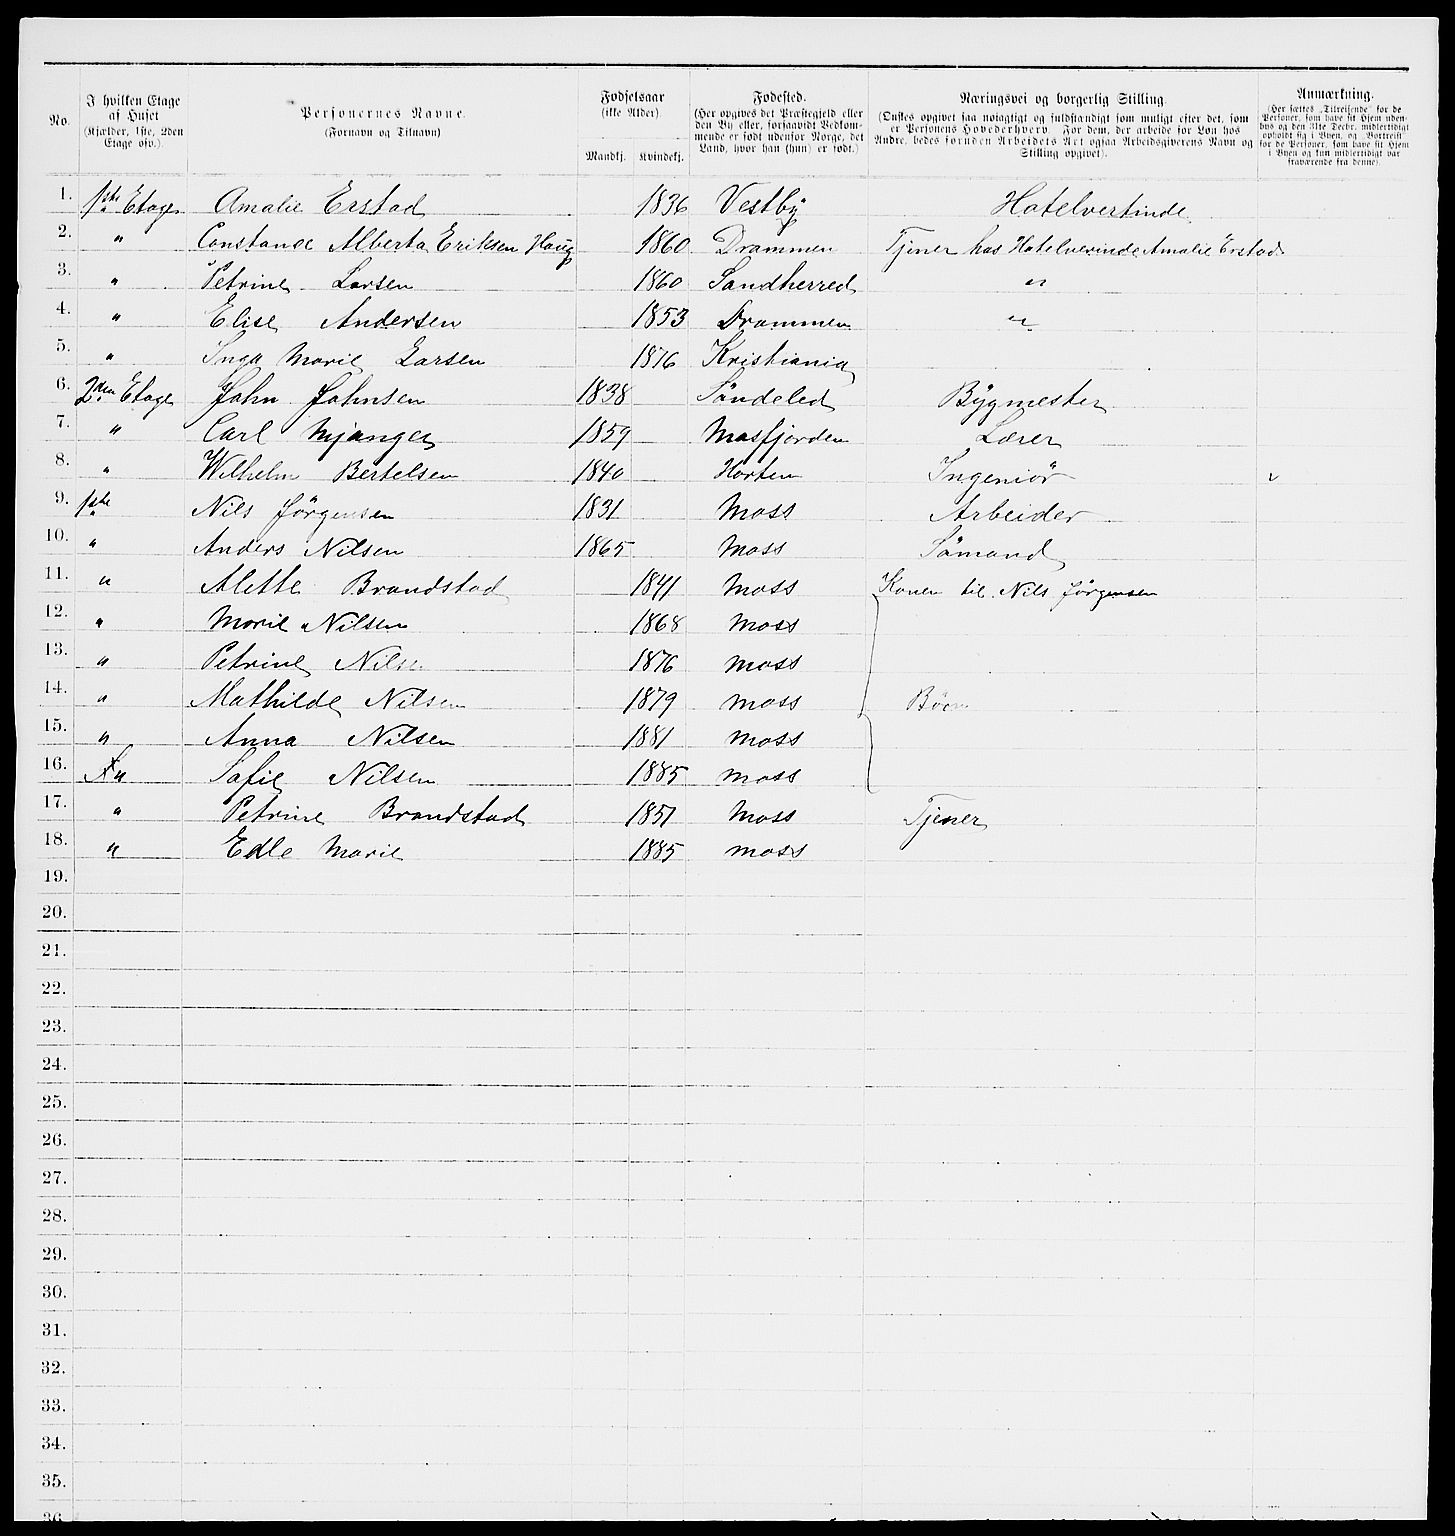 No.
I hvilken Etage af Huset (Kjælder, 1ste, 2den Etage osv.).
Personernes Navne. (Fornavn og Tilnavn)
Fødselsaar (ikke Alder).
Mandkj. Kvindekj.
Fødested. (Her opgives det Præstegjeld eller den By eller, forsaavidt Vedkommende er født udenfor Norge, det Land, hvor han (hun) er født.)
Næringsvei og borgerlig Stilling. (Ønskes opgivet saa nøiagtigt og fuldstændigt som muligt efter det, som er Personens Hovederhverv. For dem, der arbeide for Løn hos Andre, bedes foruden Arbeidets Art ogsaa Arbeidsgiverens Navn og Stilling opgivet).
Anmærkning. (Her sættes „Tilreisende“ for de Personer, som have sit Hjem udenbys og den 31te Decbr. midlertidigt opholdt sig i Byen, og „Bortreist“ for de Personer, som have sit Hjem i Byen og kun midlertidigt var fraværende fra denne).
1. 1ste Etage Amalie Erstad 1836 Vestby Hotelvertinde
2. " Constance Alberta Eriksen Haug 1860 Drammen Tjener hos Hotelverinde Amalie Erstad
3. " Petrine Larsen 1860 Sandherred "
4. " Elise Andersen 1853 Drammen "
5. " Inga Marie Larsen 1876 Kristiania
6. 2den Etage John Johnsen 1838 Söndeled Bÿgmester
7. " Carl Mjanger 1859 Masfjorden Lærer
8. " Wilhelm Bertelsen 1840 Horten Ingeniör
9. 1ste Nils Jörgensen 1831 Moss Arbeider
10. " Anders Nilsen 1865 Moss Sömand
11. " Alette Brandstad 1841 Moss Konen til Nils Jörgensen
12. " Marie Nilsen 1868 Moss
13. " Petrine Nilsen 1876 Moss
14. " Mathilde Nilsen 1879 Moss Börn
15. " Anna Nilsen 1881 Moss
16. X " Sofie Nilsen 1885 Moss
17. " Petrine Brandstad 1851 Moss Tjener
18. " Edle Marie 1885 Moss
19.
20.
21.
22.
23.
24.
25.
26.
27.
28.
29.
30.
31.
32.
33.
34.
35.
36.